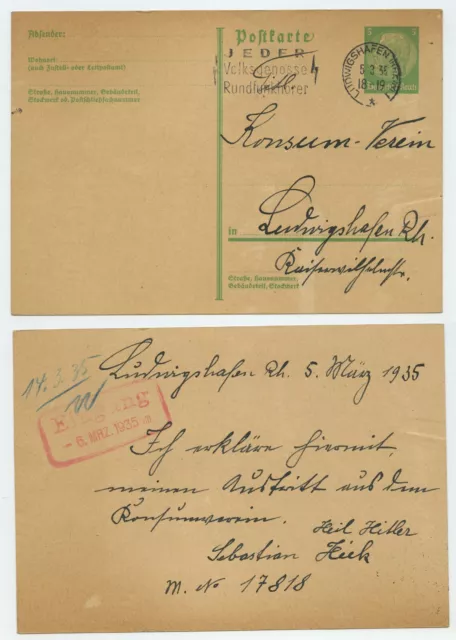 Absender:
Wohnort:
(auch Zustell- oder Leitpostamt)
Straße, Hausnummer, Gebäudeteil,
Stockwerk od. Postschließfachnummer
Postkarte
JEDER
Volksgenosse
Rundfunkhörer
LUDWIGSHAFEN
5.3.35
18-19
5
5
Konsum-Verein
in Ludwigshafen Rh.
Kaiserwilhelmstr.
Straße, Hausnummer,
Gebäudeteil, Stockwerk
14.3.35
Eingang
- 6. MRZ. 1935
Ludwigshafen Rh. 5. März 1935
Ich erkläre hiermit
meinen Austritt aus dem
Konsumverein.
Heil Hitler
Sebastian Hick
M. No 17818